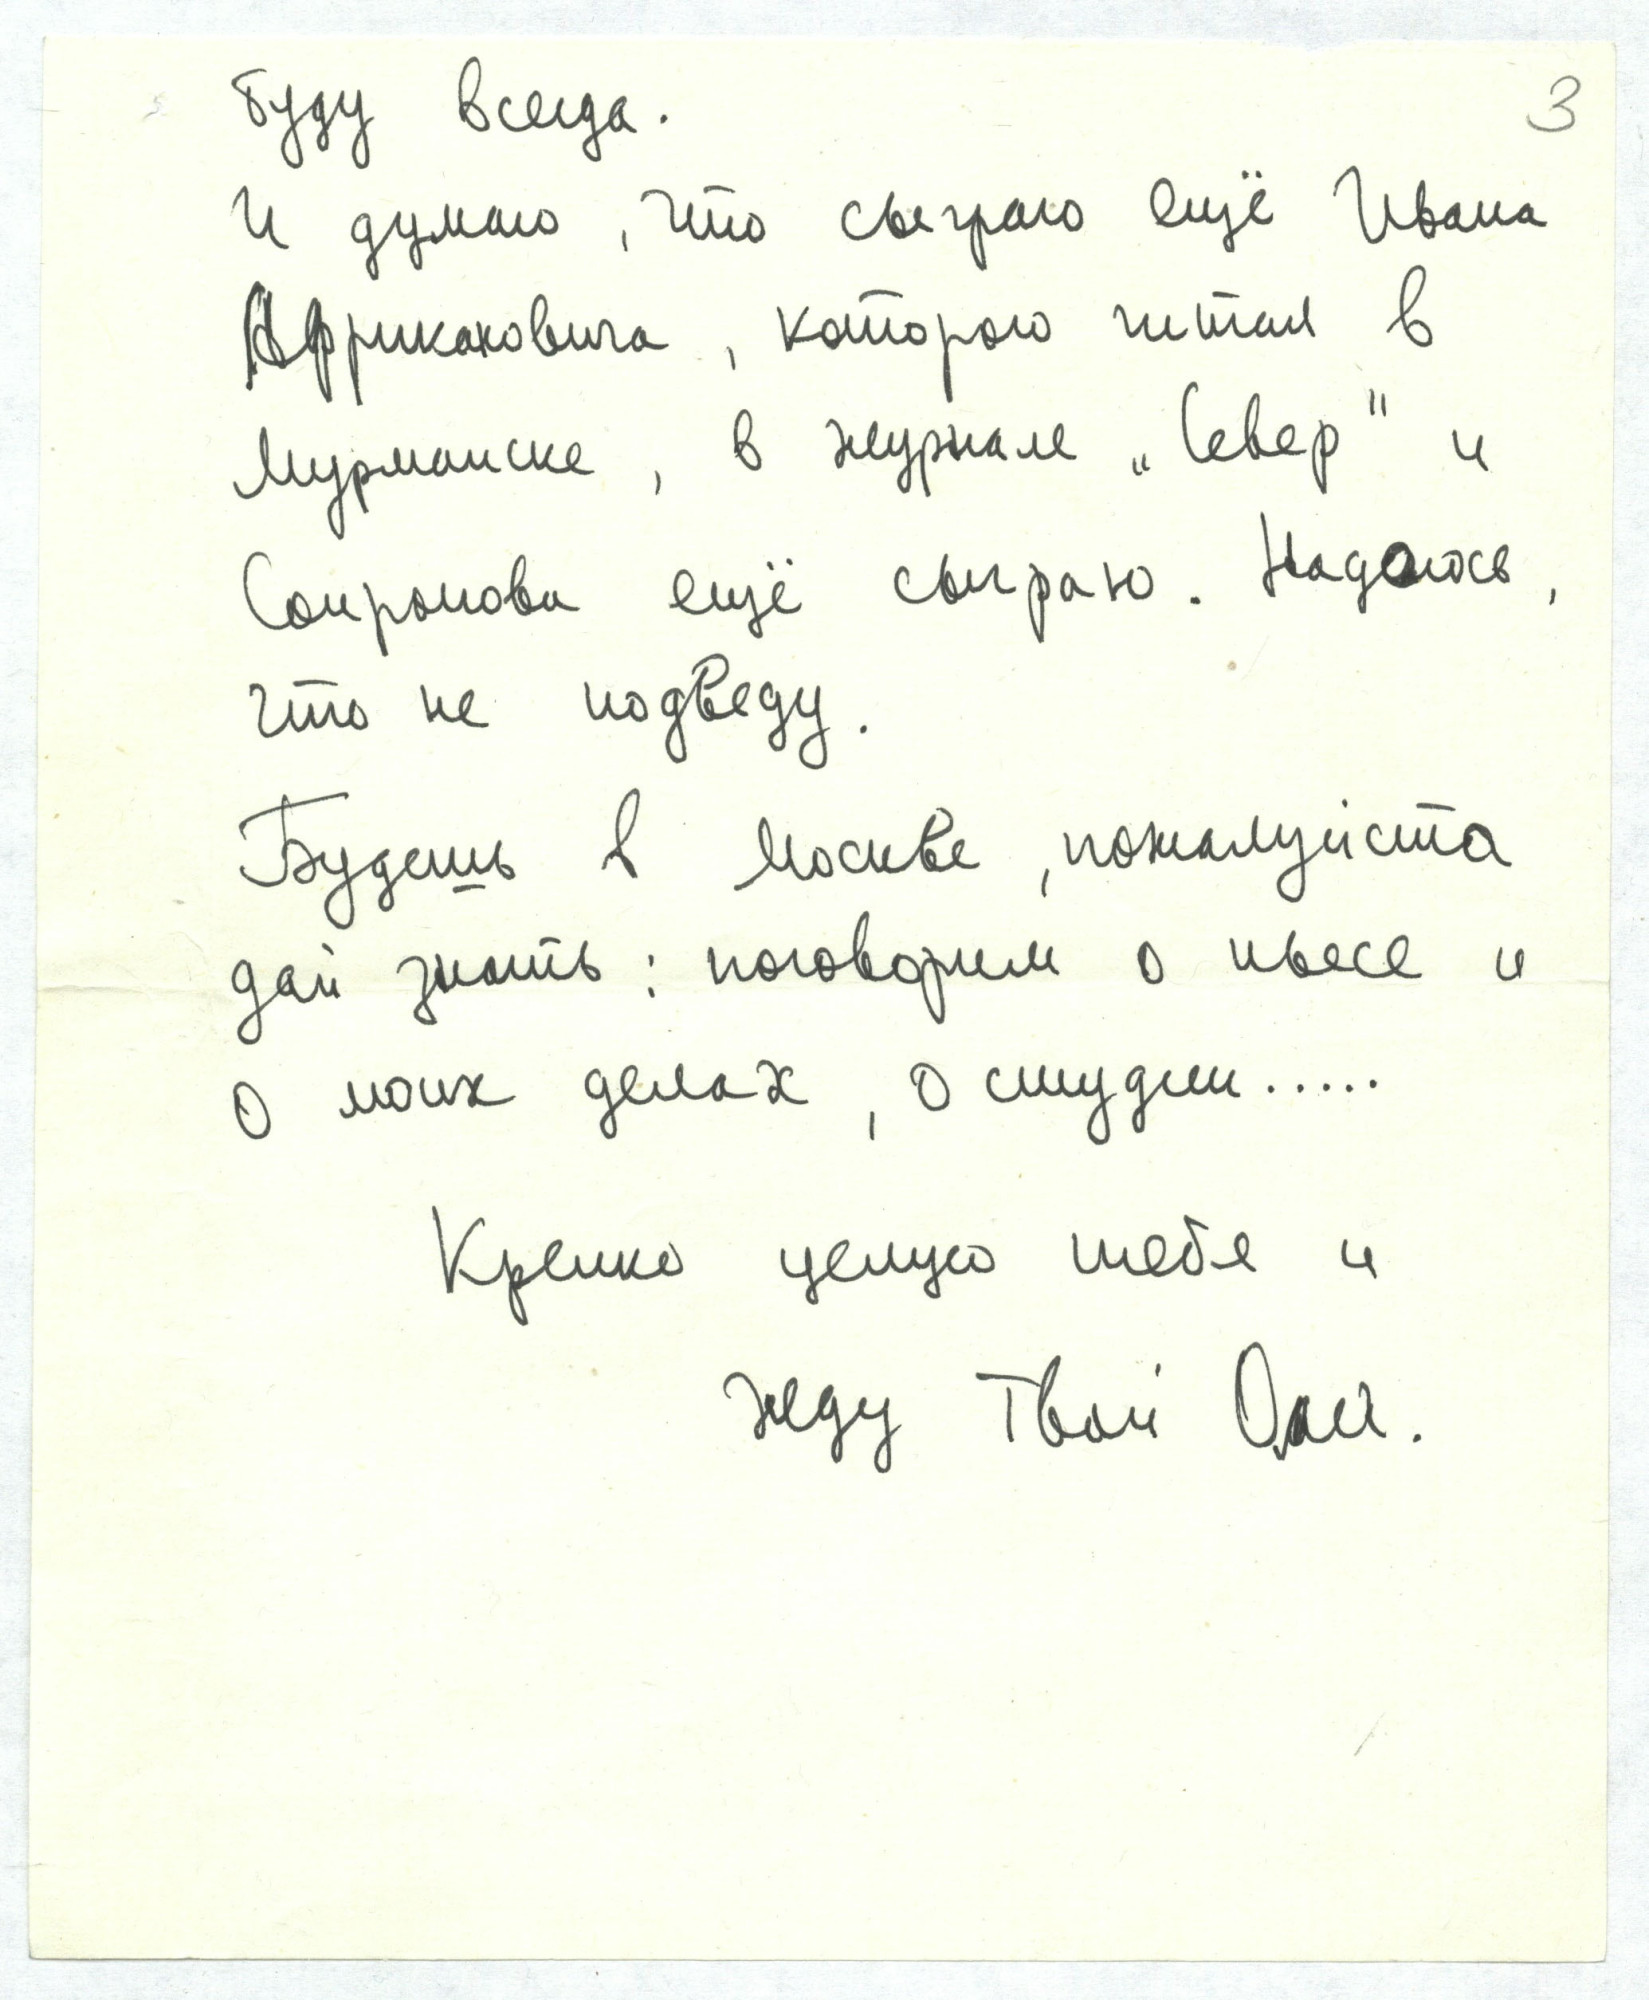 3
буду всегда.
И думаю, что сыграю ещё Ивана
Африкановича, которого читал в
Мурманске, в журнале „Север" и
Сопронова ещё сыграю. Надеюсь,
что не подведу.
Будешь в Москве, пожалуйста
дай знать: поговорим о пьесе и
о моих делах, о студии.....
Крепко целую тебя и
жду Твой